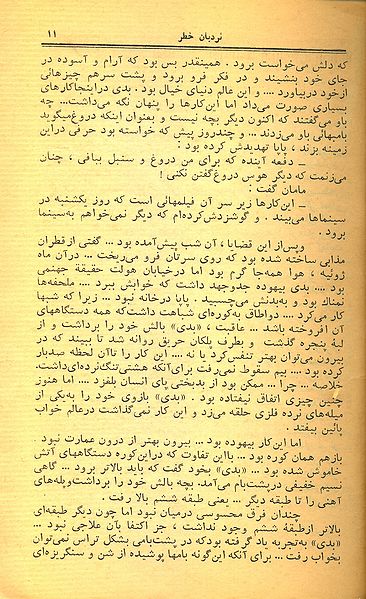 نردبان خطر
۱۱
که دلش می‌خواست برود . همینقدر بس بود که آرام و آسوده در
جای خود بنشیند و در فکر فرو برود و پشت سرهم چیزهائی
ازخود دربیاورد .... و این عالم دنیای خیال بود . بدی دراینجاکارهای
بسیاری صورت می‌داد اما این‌کارها را پنهان نگه می‌داشت... چه
باو می‌گفتند که اکنون دیگر بچه نیست و بعنوان اینکه دروغ‌میگوید
بامبهائی باو می‌زدند ... و چندروز پیش که خواسته بود حرفی دراین
زمینه بزند ، پاپا تهدیدش کرده بود :
ــ دفعه آینده که برای من دروغ و سنبل ببافی ، چنان
می‌زنمت که دیگر هوس دروغ‌گفتن نکنی !
مامان گفت :
ــ این‌کارها زیر سر آن فیلمهائی است که روز یکشنبه در
سینماها می‌بیند . و گوشزدش‌کرده‌ام که دیگر نمی‌خواهم به‌سینما
برود .
وپس‌از این قضایا ، آن شب پیش‌آمده بود ... گفتی ازقطران
مذابی ساخته شده بود که روی سرتان فرو می‌ریخت ... درآن ماه
ژوئیه ، هوا همه‌جا گرم بود اما درخیابان هولت حقیقة جهنمی
بود .... بدی بیهوده جدوجهد داشت که خوابش ببرد .... ملحفه‌ها
نمناك بود و به‌بدنش می‌چسبید . پاپا درخانه نبود ... زیرا که شبها
کار می‌کرد .... دواطاق به‌کوره‌ای شباهت داشت‌که همه دستگاههای
آن افروخته باشد ... عاقبت ، «بدی» بالش خود را برداشت و از
لبهٔ پنجره گذشت و بطرف پلکان حریق روانه شد تا ببیند که در
بیرون می‌توان بهتر تنفس‌کرد یا نه .... این کار را تاآن لحظه صدبار
کرده بود .... بیم سقوط نمی‌رفت برای آنکه هشتی‌تنگ‌نرده‌ای‌داشت.
خلاصه ... چرا ... ممکن بود از بدبختی پای انسان بلغزد .... اما هنوز
چنین چیزی اتفاق نیفتاده بود . «بدی» بازوی خود را به‌یکی از
میله‌های نرده فلزی حلقه می‌زد و این کار نمی‌گذاشت درعالم خواب
پائین بیفتد .
اما این‌کار بیهوده بود ... بیرون بهتر از درون عمارت نبود .
بازهم همان کوره بود ... بااین تفاوت که دراین‌کوره دستگاههای آتش
خاموش شده بود ... «بدی» بخود گفت که باید بالاتر برود ... گاهی
نسیم خفیفی درپشت‌بام می‌آمد. بچه بالش خود را برداشت‌وپله‌های
آهنی را تا طبقه دیگر ... یعنی طبقه ششم بالا رفت .
چندان فرق محسوسی درمیان نبود اما چون دیگر طبقه‌ای
بالاتر ازطبقهٔ ششم وجود نداشت ، جز اکتفا بآن علاجی نبود ...
«بدی» به‌تجربه یاد گرفته بودکه در پشت‌بامی بشکل تراس نمی‌توان
بخواب رفت ... برای آنکه این‌گونه بامها پوشیده از شن و سنگریزه‌ای